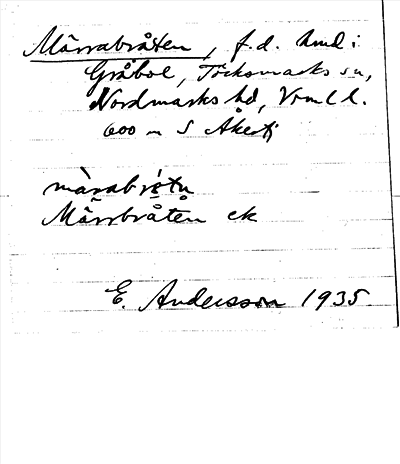 Märrabråten, f.d. hmd i
Gråbol, Töcksmarks sn,
Nordmarks hd, Vrml l.
600 m S Åkerö
màrabrɷ́tn
Märrbråten ek
E. Andersson 1935